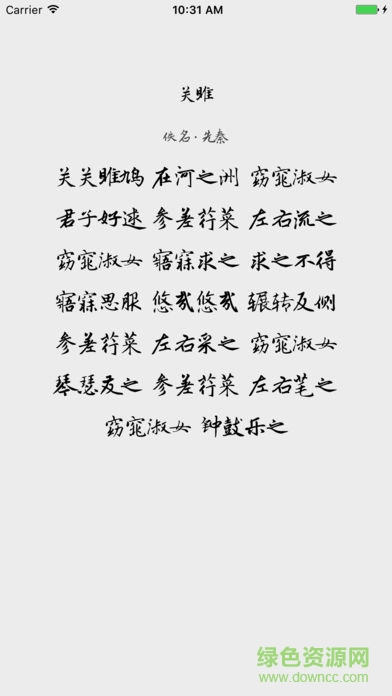 Carrier 10:31 AM
关雎
佚名·先秦
关关雎鸠 在河之洲 窈窕淑女
君子好逑 参差荇菜 左右流之
窈窕淑女 寤寐求之 求之不得
寤寐思服 悠哉悠哉 辗转反侧
参差荇菜 左右采之 窈窕淑女
琴瑟友之 参差荇菜 左右笔之
窈窕淑女 钟鼓乐之
绿色资源网
www.downcc.com